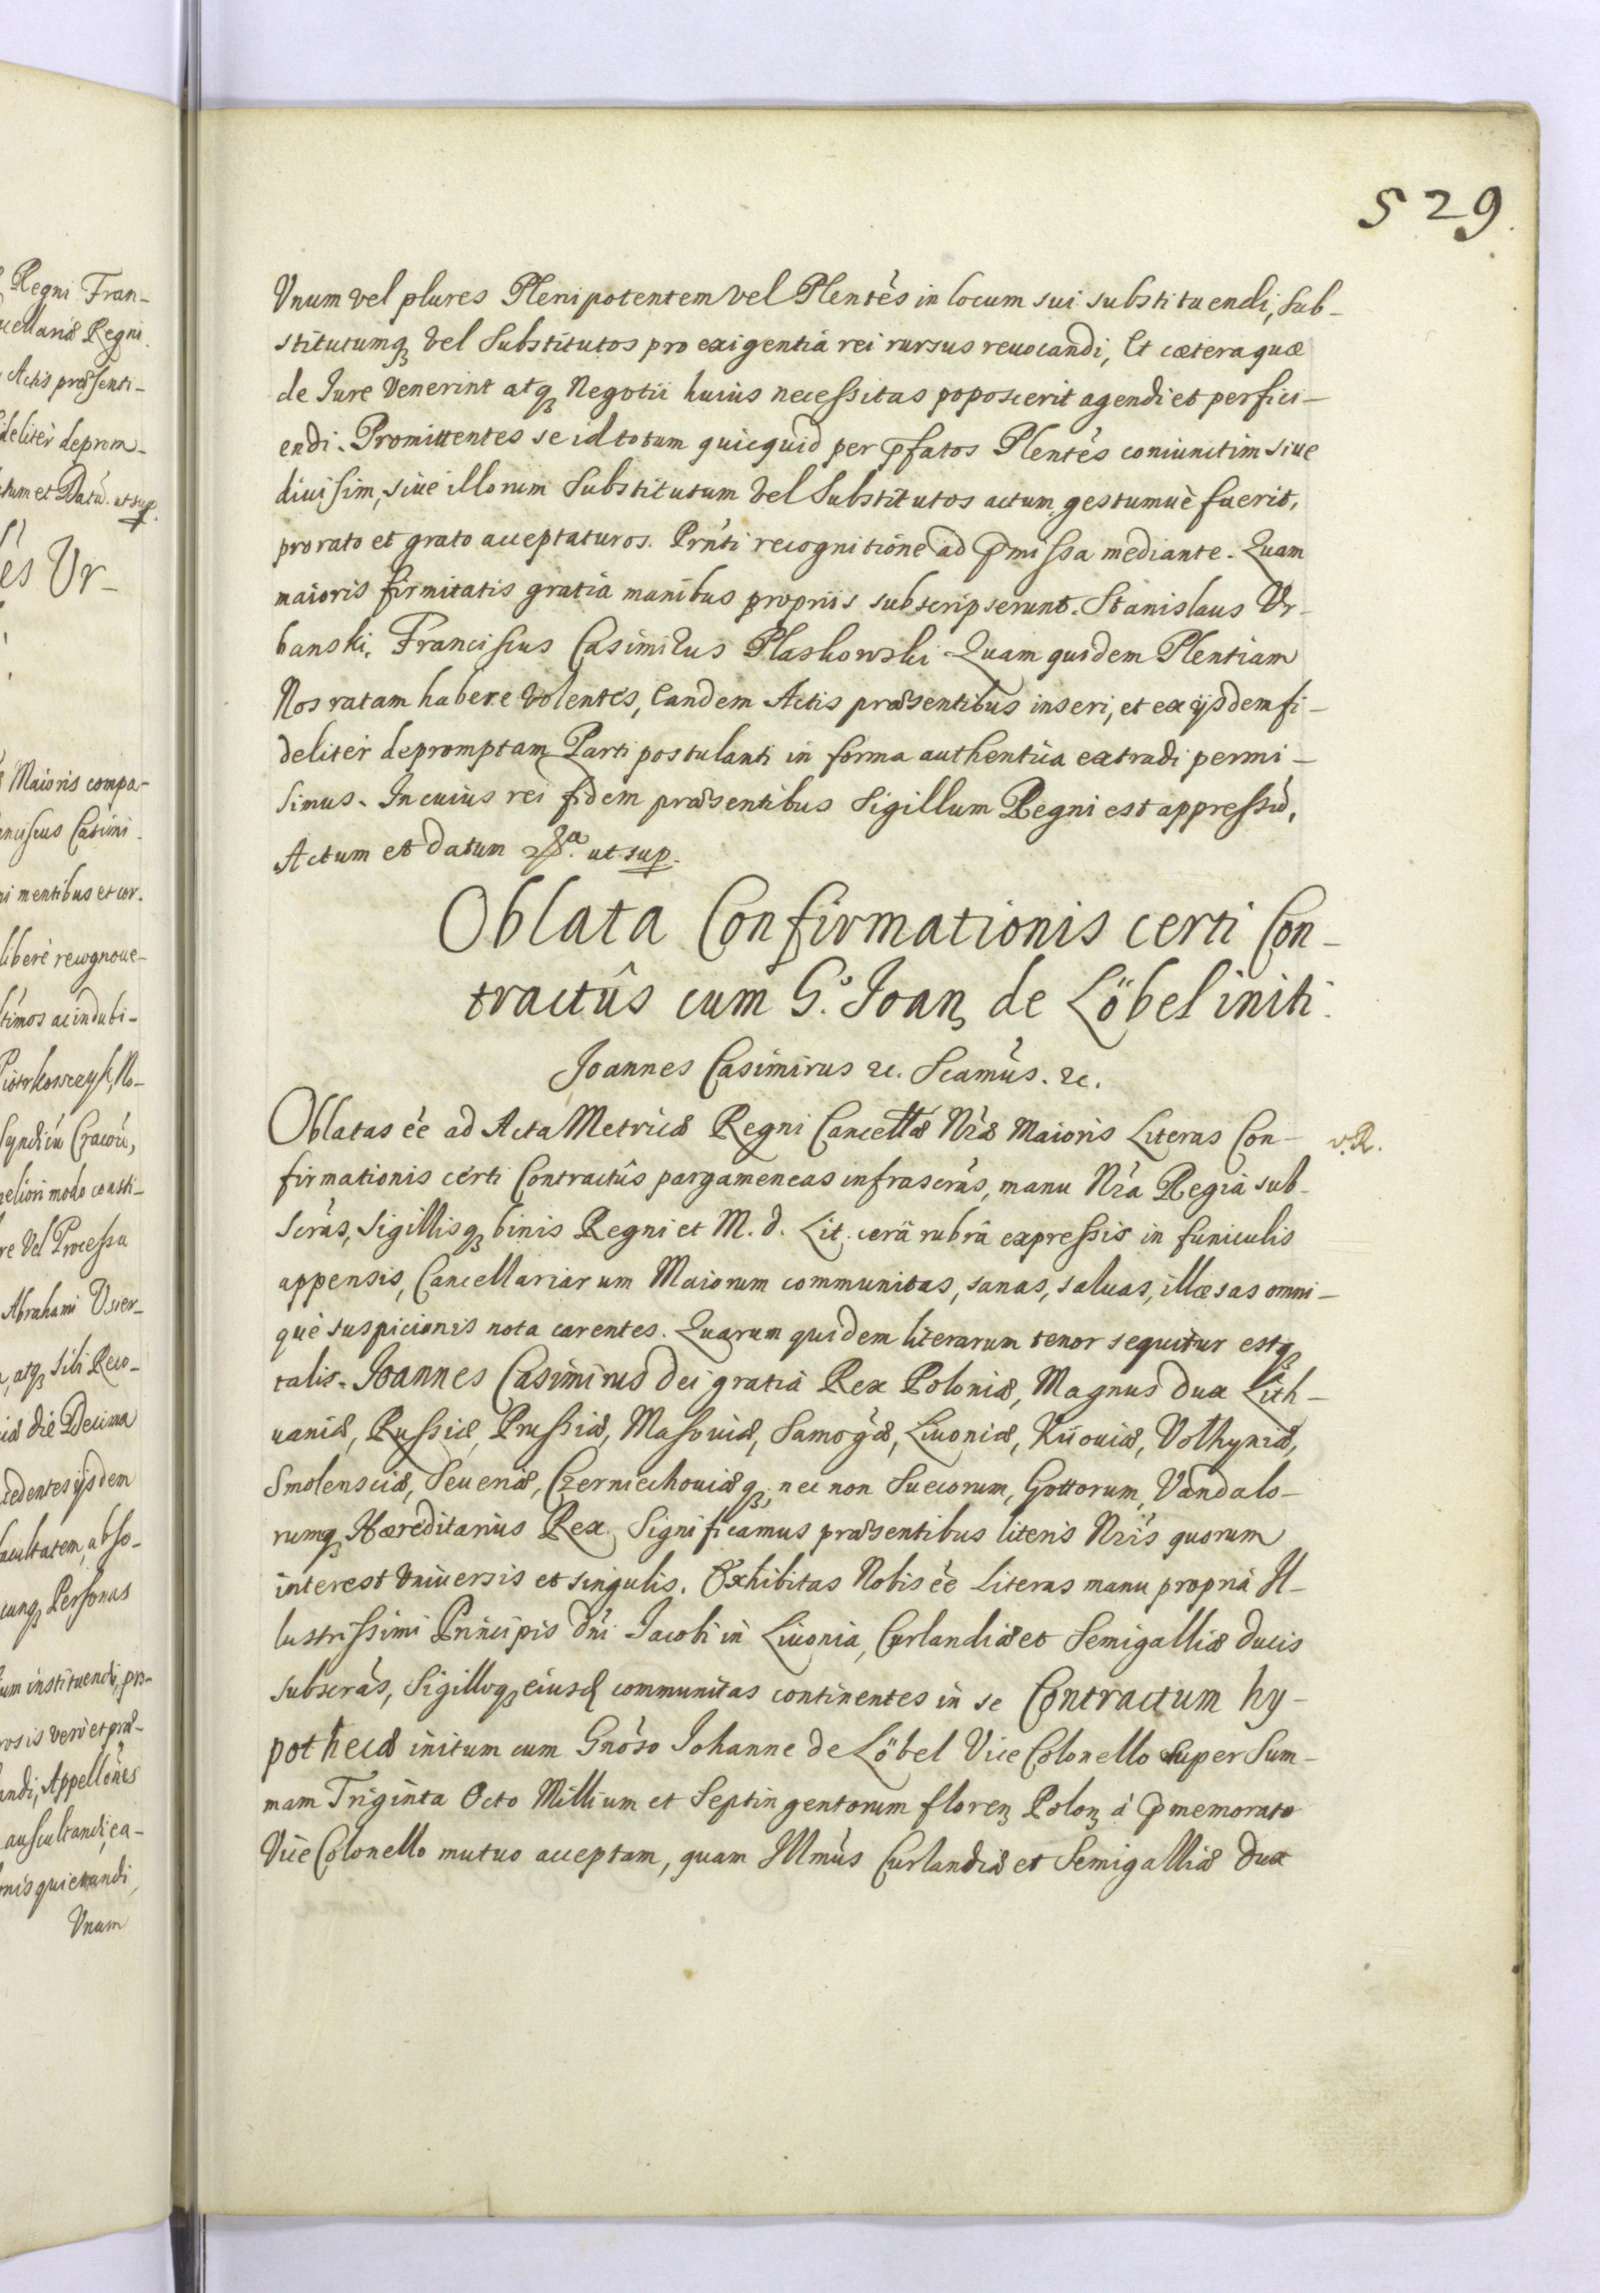 Regni Fran-
cellariæ Regni.
Actis præsenti-
deliter deprom-
ctum et Datũ. ut sup.
es Ur-
Maioris compa-
nciscus Casimi-
mentibus et cor-
liberè recognoue-
timos ac indubi-
Piotrkowczyk, No-
Syndicũ Cracoũ,
meliori modo consti-
re Vel Processu
Abrahami
atq3 sibi Reco-
die Decima
cedentes ijsdem
facultatem, abso-
cunq3 Personas
um instituendi, pro-
et præ-
andi, Appellõnes
auscultandi, ea-
quietandi,
Unum
529.
Vnum vel plures Plenipotentem vel Plentẽs in locum sui substituendi, Sub-
stitutumq3 Vel Substitutos pro exigentiâ rei rursus reuocandi, Et cætera quæ
de Iure Venerint atq3 Negotii huius necessitas poposcerit agendi et perfici-
endi. Promittentes se id totum quicquid per p̃fatos Plentẽs coniunctim siue
diuisim, siue illorum Substitutum Vel Substitutos actum, gestumuè fuerit,
pro rato et grato accepturos. Prñti recognitione ad p̃missa mediante. Quam
maioris firmitatis gratiâ manibus propriis subscripserunt. Stanislaus Ur-
banski. Franciscus Casimirus Plaskowski Quam quidem Plentiam
Nos ratam habere Volentes, Eandem Actis præsentibus inseri, et ex ijsdem fi-
deliter depromptam Parti postulanti in forma authentica extradi permi-
simus. In cuius rei fidem præsentibus Sigillum Regni est appressũ.
Actum et Datum ut sup.
Oblata Confirmationis certi Con-
tractûs cum G.º Joan3 de Löbel initi.
Joannes Casimirus &c. Scamũs. &c.
v. R.
Oblatas ẽe ad Acta Metricæ Regni Cancellæ Nr̃æ Maioris Literas Con-
firmationis certi Contractûs pargameneas infrascrãs, manu Nr̃a Regiâ sub-
scrãs, Sigillisq3 binis Regni et M. D. Lit. cerâ rubrâ expressis in funiculis
appensis, Cancellariarum Maiorum communitas, sanas, saluas, illæsas omni-
què suspicionis nota carentes. Quarum quidem literarum tenor sequitur estq3
talis. Joannes Casimirus Dei gratiâ Rex Poloniæ, Magnus Dux Lith-
uaniæ, Russiæ, Prussiæ, Masouiæ, Samog̃æ, Liuoniæ, Kiiouiæ, Volhyniæ,
Smolensciæ, Seueriæ, Czerniechouiæq3, nec non Suecorum, Gottorum, Vandalo-
rumq3 Hæreditarius Rex. Significamus præsentibus literis Nr̃is quorum
interest Vniuersis et singulis. Exhibitas Nobis ẽe Literas manu propriâ Il-
lustrissimi Principis Dñi Jacobi in Liuonia, Curlandiæ et Semigalliæ Ducis
subscrãs, Sigilloq3 eiusd communitas continentes in se Contractum hy-
pothecæ initum cum Gnõso Johanne de Löbel Vice Colonello Super Sum-
mam Triginta Octo Millium et Septingentorum floren3 Polon3 à p̃memorato
Vice Colonello mutuo acceptam, quam Illmũs Curlandiæ et Semigalliæ Dux